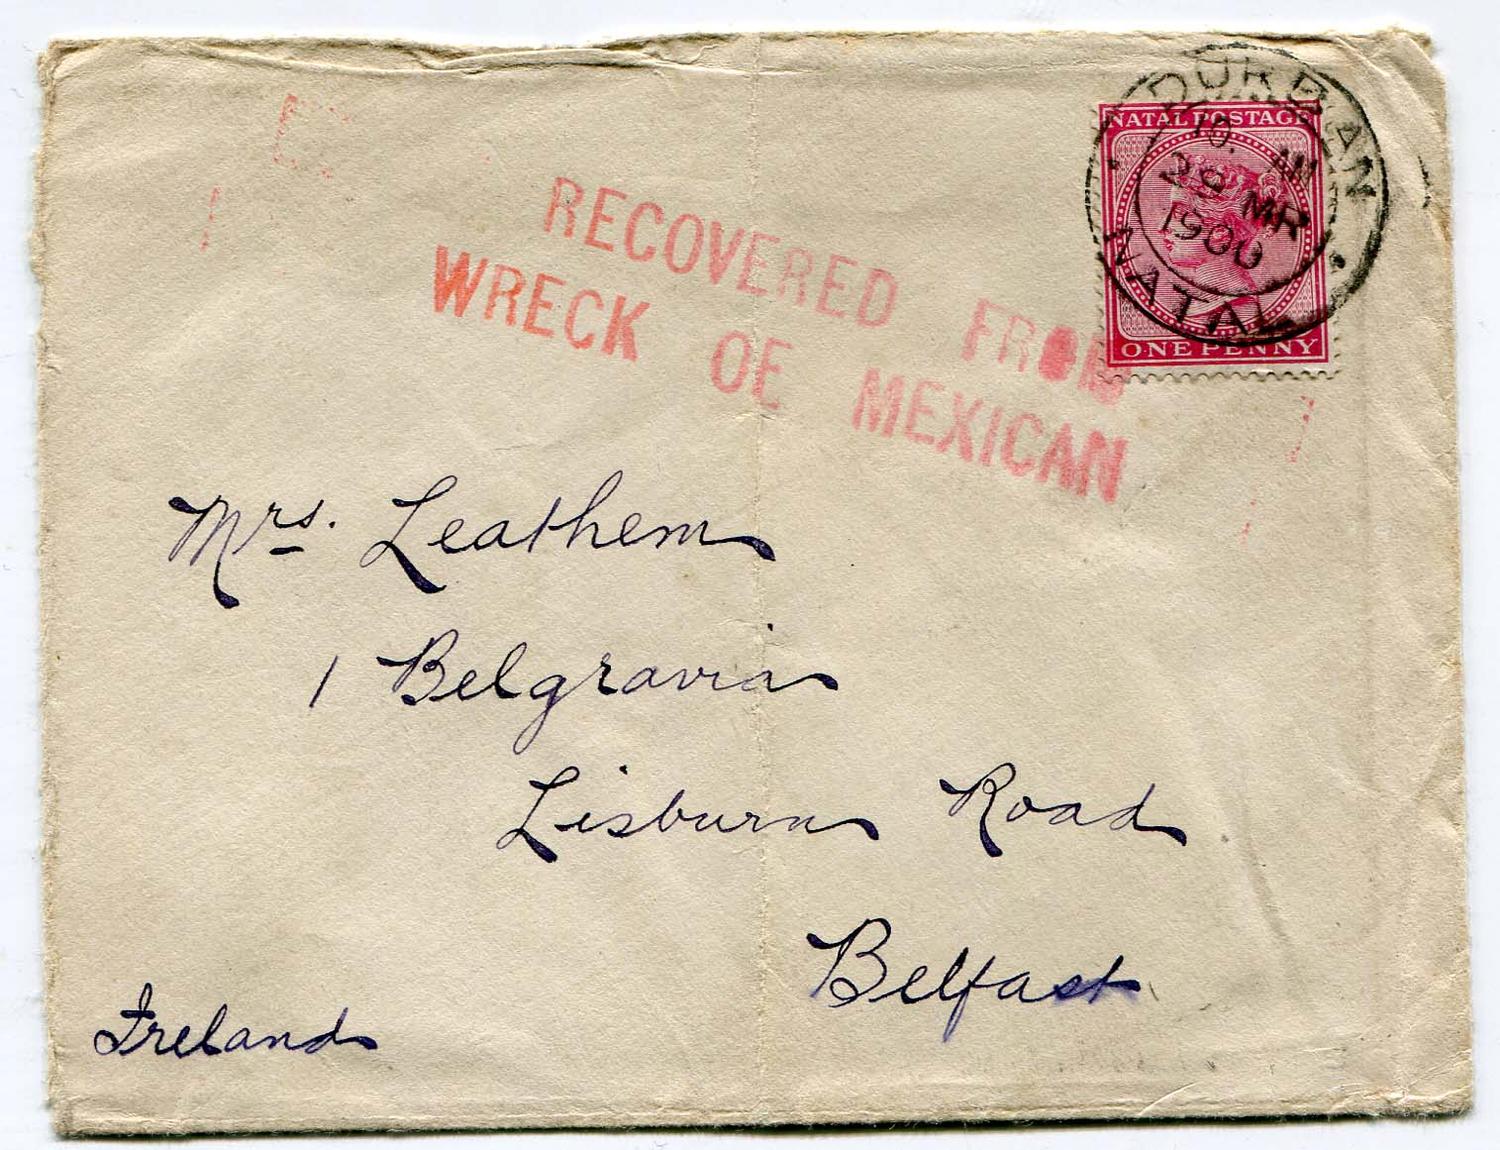 DURBAN
NATAL POSTAGE
10. AM
29 MR
1900
NATAL
ONE PENNY
RECOVERED FROM
WRECK OE MEXICAN
Mrs. Leathem
1 Belgravia
Lisburn Road
Belfast
Ireland